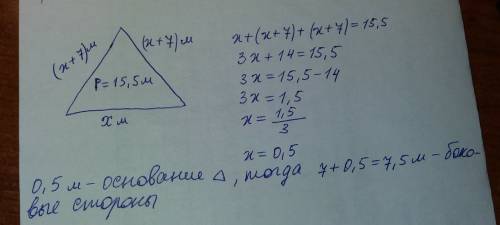 (x+7)м
(x+7)м
P=15,5м
xм
x+(x+7)+(x+7)=15,5
3x+14=15,5
3x=15,5-14
3x=1,5
x=1,5/3
x=0,5
0,5м-основание △, тогда 7+0,5=7,5м-боко-
вые стороны